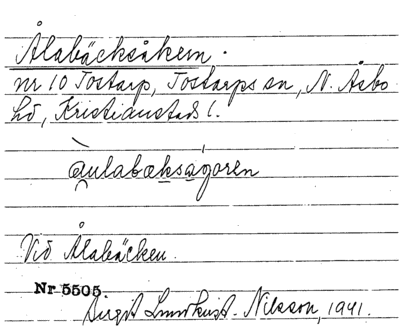 Ålabäcksåkern.
nr 10 Tostarp, Tostarps sn, N. Åsbo
hd, Kristianstads l.
àulabækságoren
Vid Ålabäcken.
Nr 5505
Birgit Lundkvist-Nilsson, 1941.